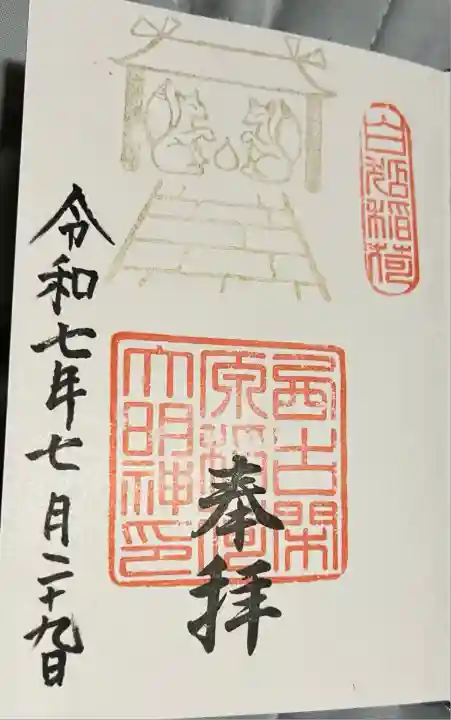 稲荷
奉拝
西古閑
原稲荷
大明神印
令和七年七月二十九日